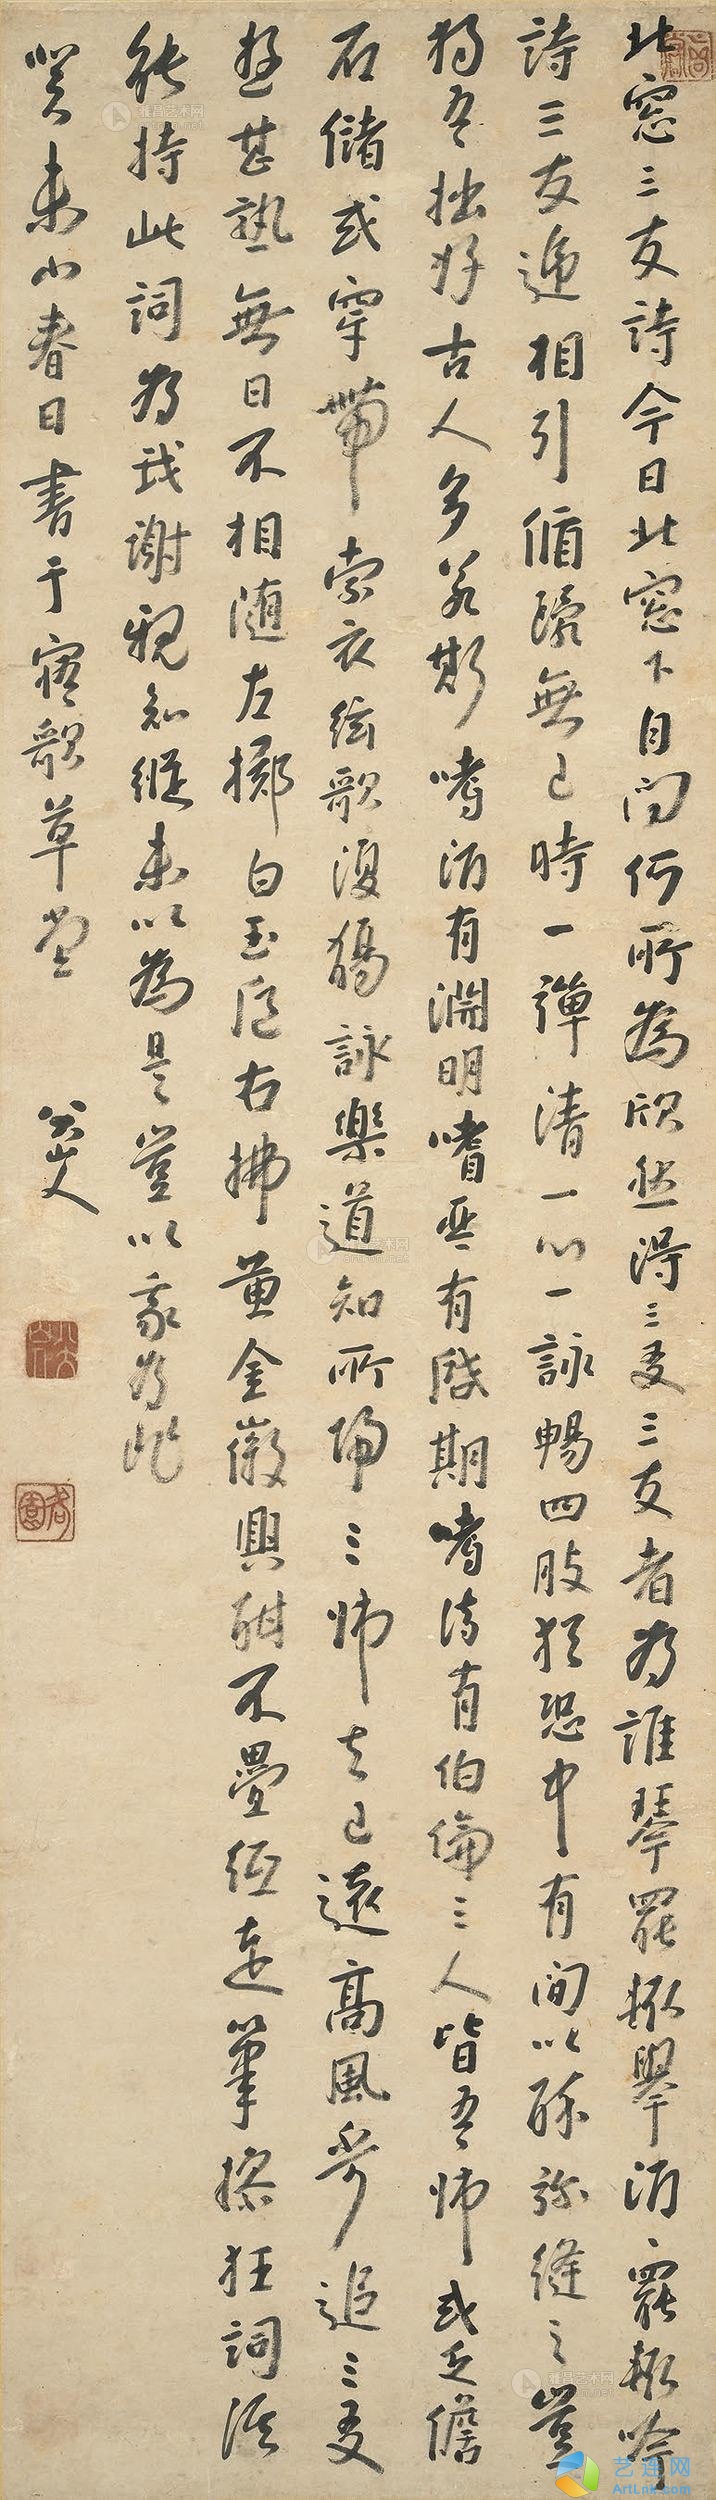 北窓三友詩今日北窓下自問何所為欣然得三友三友者為誰琴罷輒舉酒酒罷輒吟
詩三友遞相引循環無已時一彈清一心一詠暢四肢猶恐中有間以酔彌縫之豈
獨吾拙好古人多若斯嗜酒有淵明嗜琴有啟期嗜詩有伯倫三人皆吾師或乏儋
石儲或穿帶索衣絃歌復觴詠樂道知所歸三師去已遠高風不可追三友
遊甚熟無日不相隨左擲白玉卮右拂黃金徽興酣不疊紙走筆操狂詞誰
能持此詞為我謝親知縱未以為是豈以我為非
癸未小春日書于寤歌草堂 八大山人
艺连网
ArtLnk.com